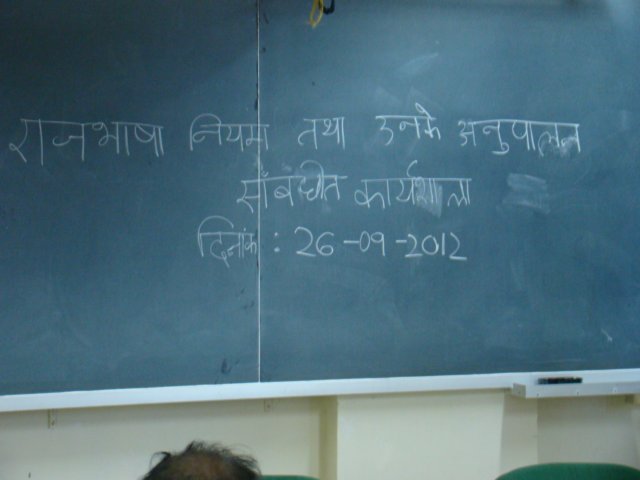 राजभाषा नियम तथा उनके अनुपालन
साँबंधीत कार्यशाला
दिनांक : 26-09-2012